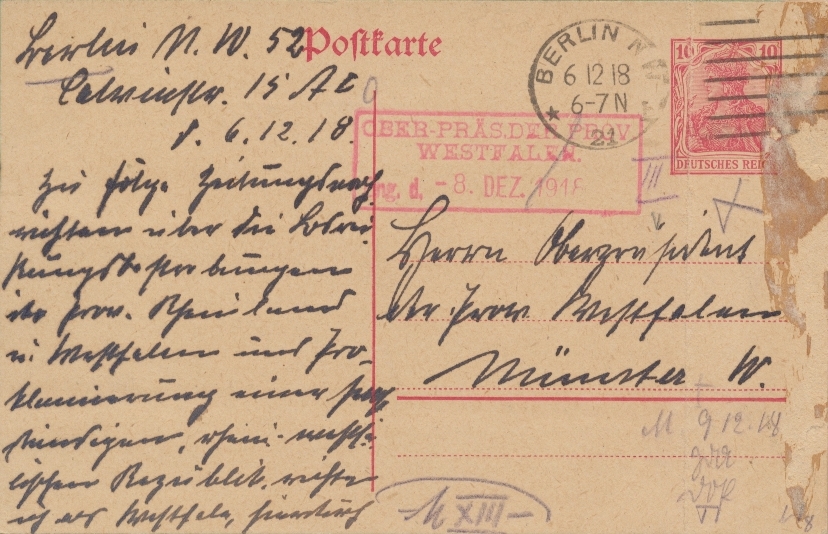 Postkarte
Berlin N. W. 52
Calvinstr. 15
d. 6.12.18.
Zu folge Zeitungsnach
richten über die Losrei
ßungsbestrebungen
der Prov. Rheinland
u. Westfalen und Pro-
klamierung einer selb
ständigen, rhein. westfä-
lischen Republik, richte
ich als Westfale, hierdurch
BERLIN NW
6 12 18
6-7 N
★ 21
10 10
DEUTSCHES REICH
OBER-PRÄS. DER PROV.
WESTFALEN.
Eing. d. - 8. DEZ. 1918
III.
Herrn Oberpräsident
der Prov Westfalen
Münster W.
M 9 12. 18
M XIII